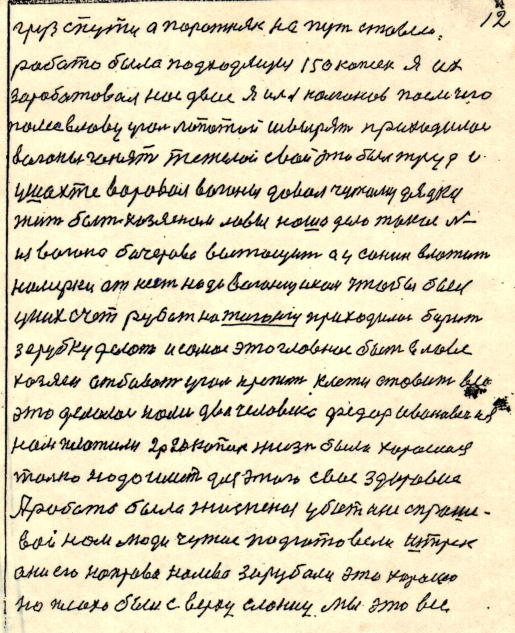 12
груз спути а порожняк на пут ставлю.
работа была подходящия 150 копек Я их
зарабатовал на двае Я или после чего
полез влаву угол лопатой швырят приходилас
вагоны гонят тежелой свой это был труд и
ушахте варовал вагоны довал чужому дядки
жит быт хозяеном лавы наша дело такое №
из вагона вытащит а у санки вложит
намерки от нест надо вагонщикам чтобы был
уних счот рубат на приходилос бурит
зарубку делат исамае этоглавнае быт влаве
хозяен отбават угол крепит клети ставит
это делалас нами два человека федар ивановеч ия
нам платили 2р20 копек жизн была харошая
толко надо имет для этаго свае здаровие
Аработа была жизненая убют ине спраше-
вай нам люди чужие подготовели штрек
они его направа налева зарубали это харашо
но плохо был сверху сланиц мы это все